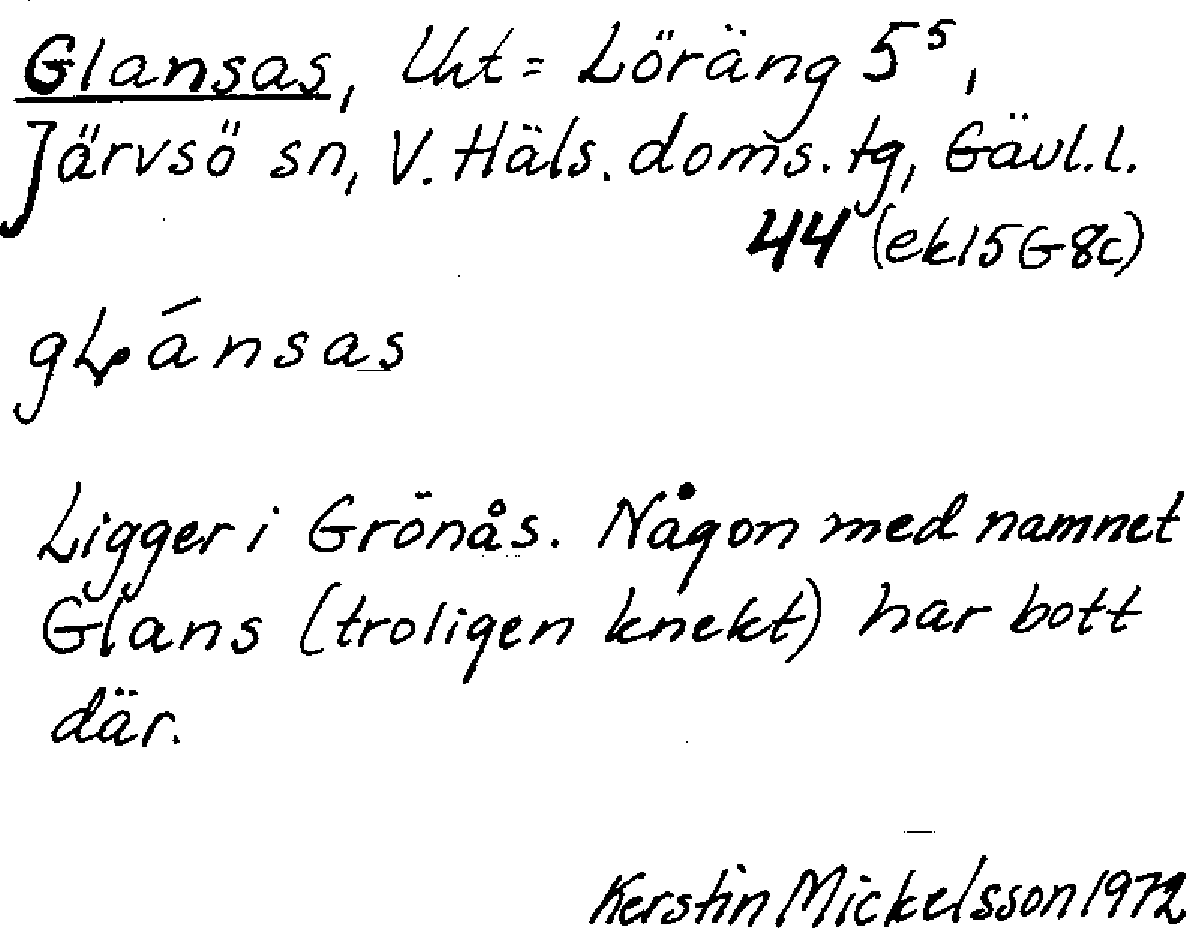 Glansas, Uht = Löräng 5⁵,
Järvsö sn, V. Häls. doms. tg, Gävl.l.
44 (ek 15G8c)
gLánsas
Ligger i Grönås. Någon med namnet
Glans (troligen knekt) har bott
där.
Kerstin Mickelsson 1972